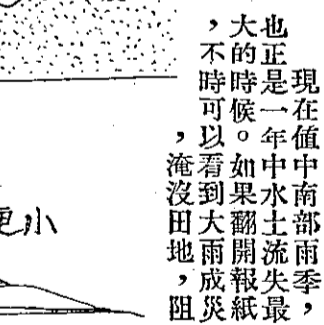 現在值中南部雨季，
也正是一年中水土流失最
大的時候。如果翻開報紙
，不時可以看到大雨成災
，淹沒田地，阻
小